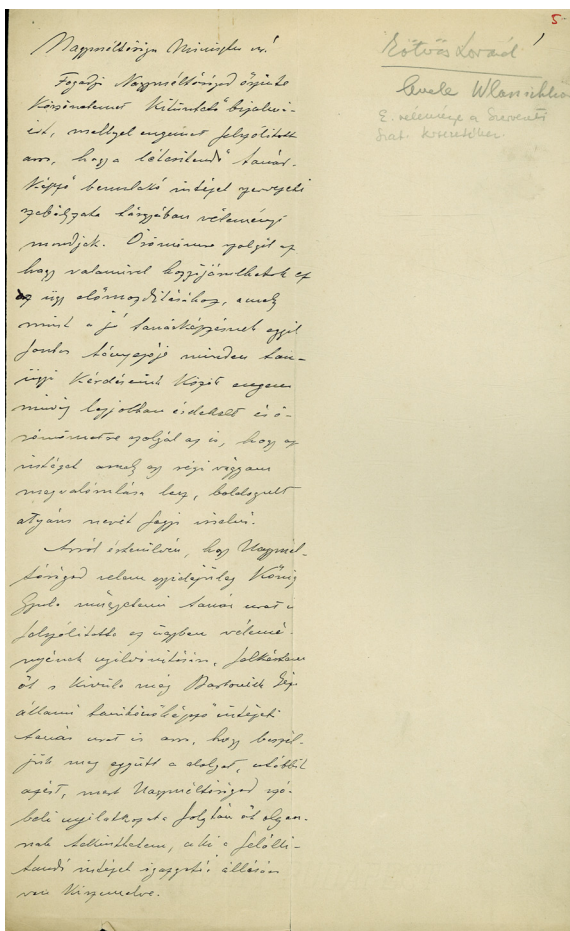 5
Eötvös Loránd
levele Wlassichhoz
E. véleménye a Szervezeti
Szab. tervezetéhez.
Nagyméltóságu Miniszter úr!
Fogadja Nagyméltóságod őszinte
köszönetemet kitüntető bizalmá-
ért, mellyel engemet felszólított
arra, hogy a létesítendő tanár-
képző bennlakó intézet szervezeti
szabályzata tárgyában véleményt
mondjak. Örömömre szolgál az
hogy valamivel hozzájárulhatok ez
ügy előmozdításához, amely
mint a jó tanárképzésnek egyik
fontos tényezője minden tan-
ügyi kérdéseink között engem
mindig legjobban érdekelt és ö-
römömre szolgál az is, hogy az
intézet amely egy régi vágyam
megvalósulása lesz, boldogult
atyám nevét fogja viselni.
Arról értesülvén, hogy Nagymél-
tóságod velem egyidejűleg König
Gyula műegyetemi tanár urat is
felszólította ez ügyben vélemé-
nyének nyilvánítására, felkértem
őt s kívüle még Bartoniek Géza
állami tanítónőképző intézeti
tanár urat is arra, hogy beszél-
jük meg együtt a dolgot, utóbbit
azért, mert Nagyméltóságod szó-
beli nyilatkozata folytán őt olyan-
nak tekinthetem, a ki a felállí-
tandó intézet igazgatói állására
van kiszemelve.